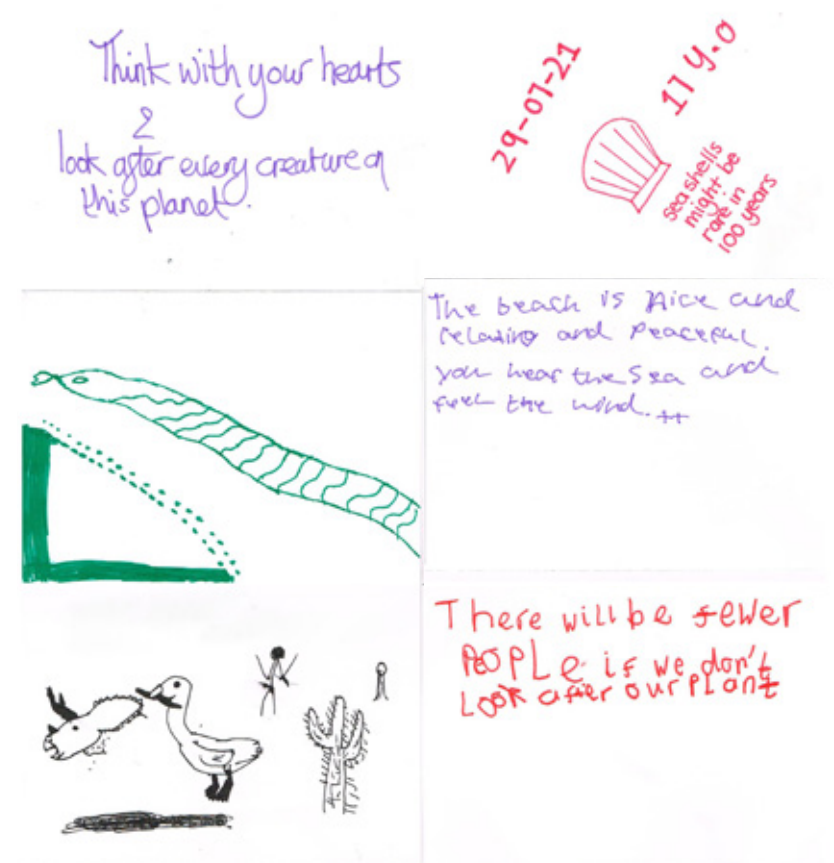 Think with your hearts
&
look after every creature on
this planet.
29-07-21
17 y.o
Seashells
might be
rare in
100 years
The beach is Nice and
relaxing and Peaceful.
you hear the Sea and
feel the wind.
There will be fewer
PEOPLe if we don't
LOOK after our PLANt